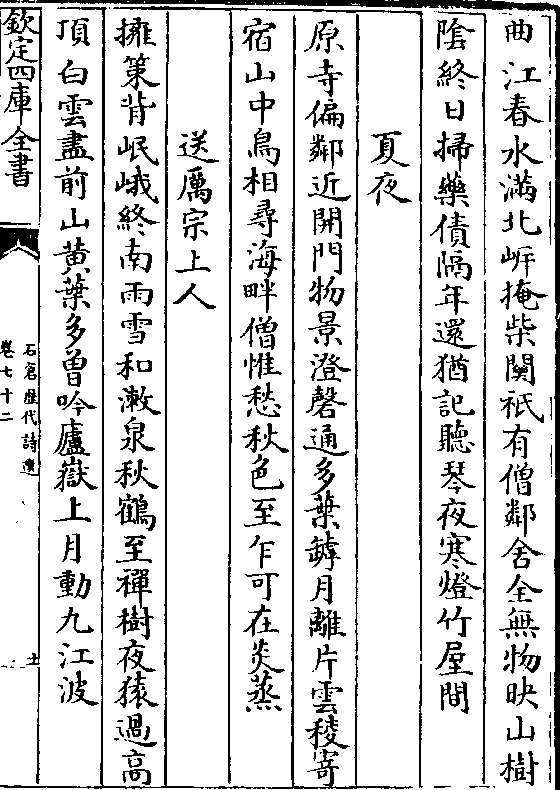 曲江春水滿北岸掩柴關祇有僧鄰舍全無物映山樹
隂終日掃藥債隔年還猶記聽琴夜寒燈竹屋間
夏夜
原寺偏鄰近開門物景澄磬通多葉罅月離片雲稜寄
宿山中鳥相尋海畔僧惟愁秋色至乍可在炎蒸
送厲宗上人
擁策背岷峨終南雨雪和漱泉秋鶴至禪樹夜猿過高
頂白雲盡前山黄葉多曽吟廬嶽上月動九江波
欽定四庫全書
石倉歴代詩選
卷七十二
士